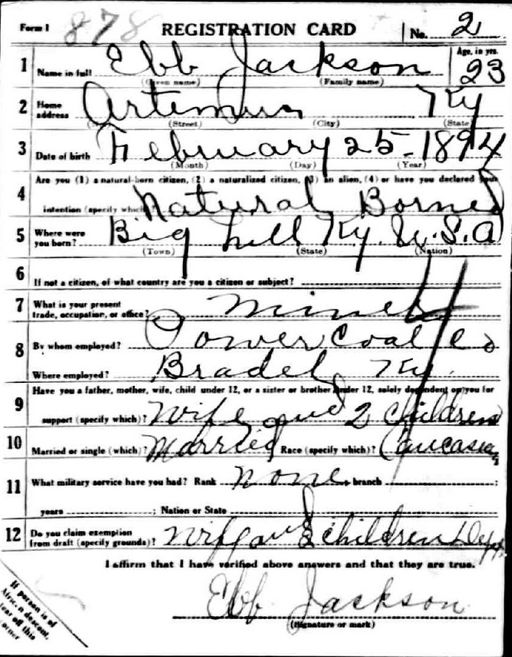 Form 1 878 REGISTRATION CARD No. 2
1 Name in full Ebb Jackson Age, in yrs. 23
(Given name) (Family name)
2 Home address Artemus Ky
(Street) (City) (State)
3 Date of birth February 25 1894
(Month) (Day) (Year)
Are you (1) a natural-born citizen, (2) a naturalized citizen, (3) an alien, (4) or have you declared your
4 intention (specify which) Natural Borned
5 Where were you born? Big hill Ky. U.S.A
(Town) (State) (Nation)
6 If not a citizen, of what country are you a citizen or subject?
7 What is your present trade, occupation, or office? Miner
8 By whom employed? Power Coal Co
Where employed? Ky.
Have you a father, mother, wife, child under 12, or a sister or brother under 12, solely dependent on you for
9 support (specify which)? Wife and 2 Children
10 Married or single (which)? Married Race (specify which)? Caucasian
11 What military service have you had? Rank none branch ;
years ; Nation or State
12 Do you claim exemption from draft (specify grounds)? children
I affirm that I have verified above answers and that they are true.
Ebb Jackson
(Signature or mark)
If person is of
African descent,
tear off this
corner